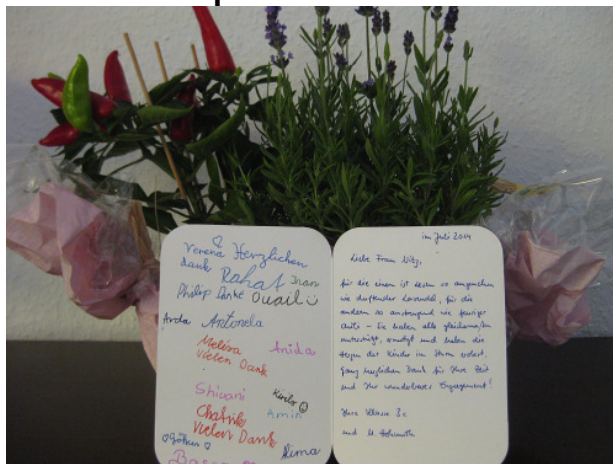 Verena Herzlichen
dank Rahat Inan
Philip Danke Ouail
Arda Antonela
Melisa Anida
Vielen Dank
Shivani Kirilo
Chatrik Amin
Vielen Dank
Göhun Nima
im Juli 2014
Liebe Frau
für die einen ist lesen so angenehm
wie duftender Lavendel, für die
andern so anstrengend wie feuriger
Chili - Sie haben alle gleichermaßen
unterstützt, ermutigt und haben die
Herzen der Kinder im Sturm erobert.
Ganz herzlichen Dank für Ihre Zeit
und Ihr wunderbares Engagement!
Ihre Klasse 3c
und